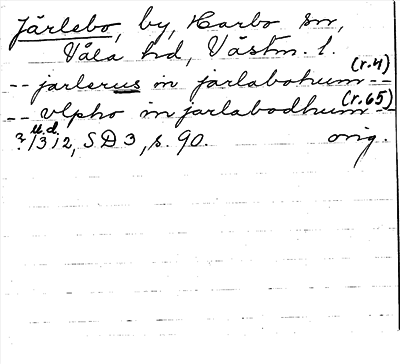 Järlebo, by, Harbo sn,
Våla hd, Västm. l.
-- jarlerus in jarlabohum -- (r.4)
-- vlpho in jarlabodhum -- (r.65)
? u.d. 1312, SD 3, s. 90. orig.